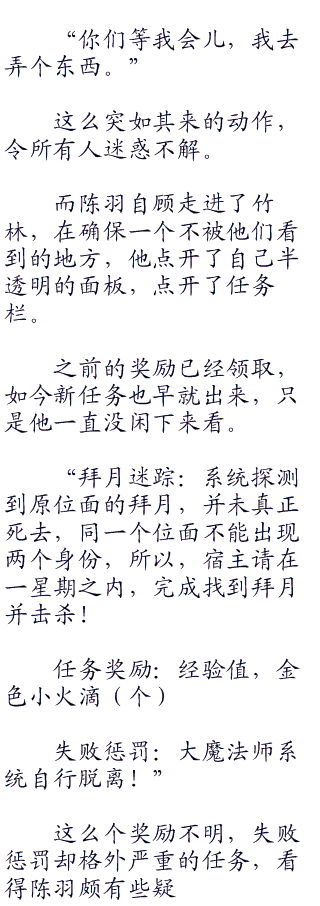 “你们等我会儿，我去
弄个东西。”
这么突如其来的动作，
令所有人迷惑不解。
而陈羽自顾走进了竹
林，在确保一个不被他们看
到的地方，他点开了自己半
透明的面板，点开了任务
栏。
之前的奖励已经领取，
如今新任务也早就出来，只
是他一直没闲下来看。
“拜月迷踪：系统探测
到原位面的拜月，并未真正
死去，同一个位面不能出现
两个身份，所以，宿主请在
一星期之内，完成找到拜月
并击杀！
任务奖励：经验值，金
色小火滴（个）
失败惩罚：大魔法师系
统自行脱离！”
这么个奖励不明，失败
惩罚却格外严重的任务，看
得陈羽颇有些疑